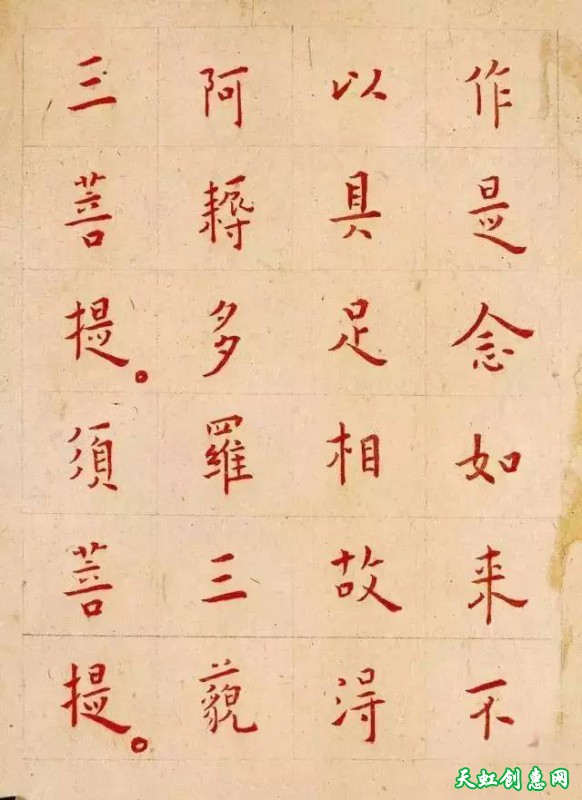 作是念如来不
以具足相故得
阿耨多羅三藐
三菩提。須菩
提。
天虹创惠网